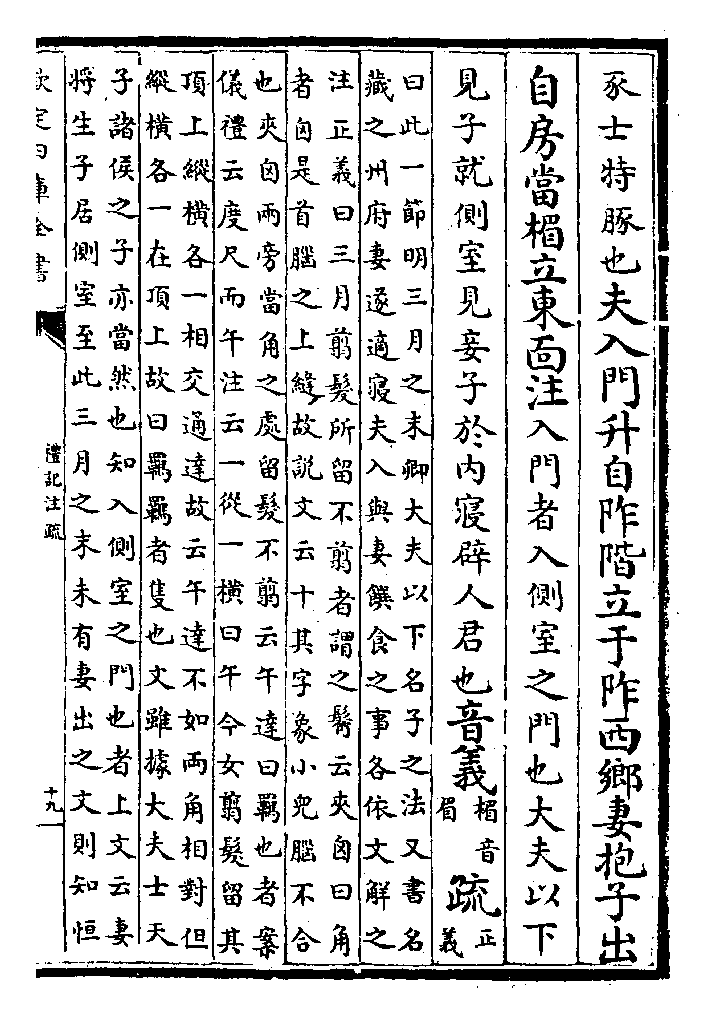 豕士特豚也夫入門升自阼階立于阼西鄉妻抱子出
自房當楣立東面注入門者入側室之門也大夫以下
見子就側室見妾子於内寢辟人君也音義楣音眉疏正義
曰此一節明三月之末卿大夫以下名子之法又書名
藏之州府妻遂適寢夫入與妻饌食之事各依文解之
注正義曰三月翦髮所留不翦者謂之鬌云夾囟曰角
者囟是首腦之上縫故說文云十其字象小兒腦不合
也夾囟兩旁當角之處留髮不翦云午達曰羈也者案
儀禮云度尺而午注云一從一橫曰午今女翦髮留其
頂上縱橫各一相交通達故云午達不如兩角相對但
縱橫各一在頂上故曰羈羈者隻也文雖據大夫士天
子諸侯之子亦當然也知入側室之門也者上文云妻
將生子居側室至此三月之末未有妻出之文則知恒
欽定四庫全書
禮記注疏
十九